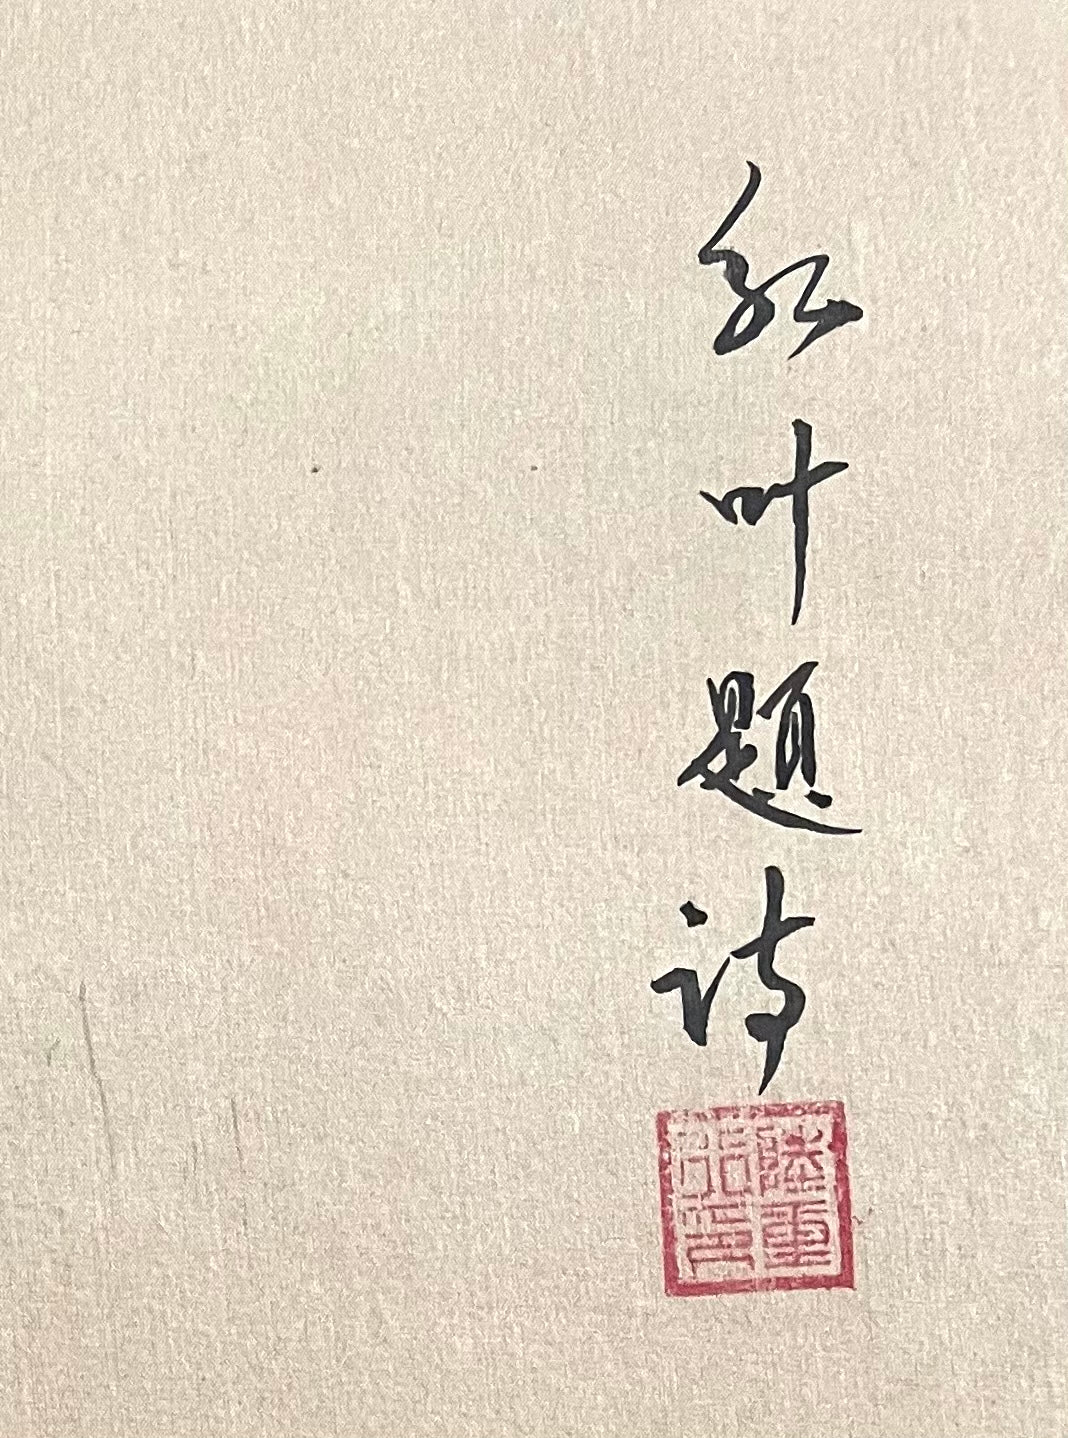 红叶题诗